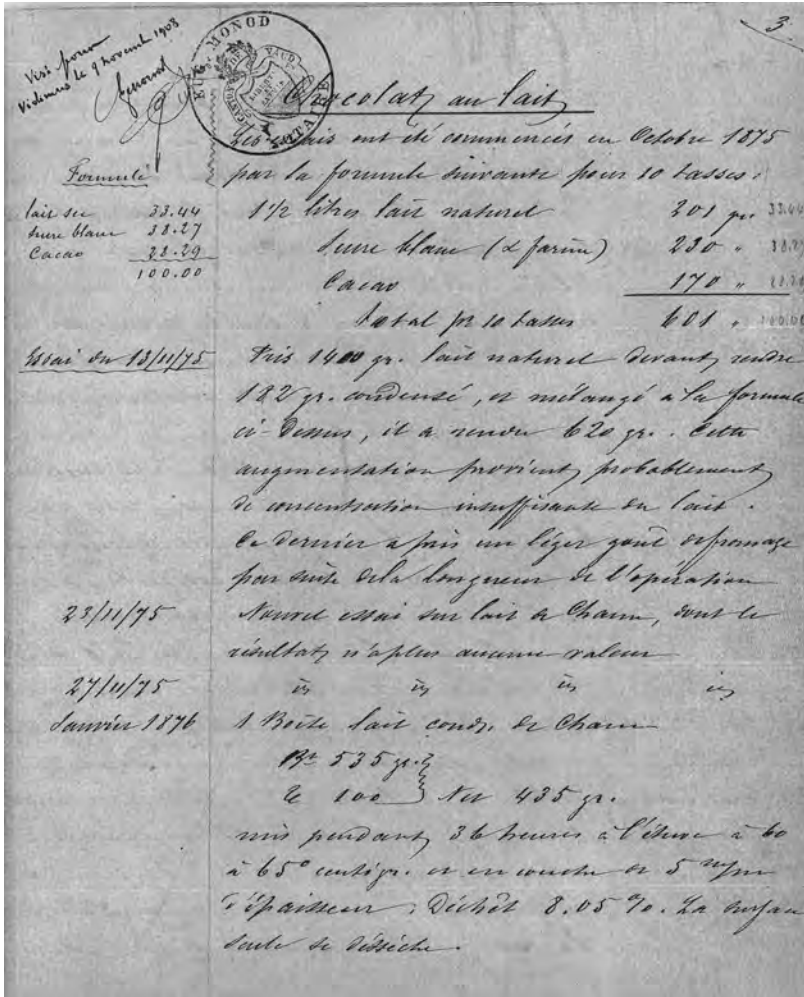 3.
Visé pour
Vidimus le 9 novembr 1908
EUG. MONOD
NOTAIRE
CANTON DE VAUD
LIBERTÉ ET PATRIE
Chocolat au lait
Les essais ont été commencés en Octobre 1875
par la formule suivante pour 10 tasses:
Formule
lait sec 33.44
sucre blanc 38.27
Cacao 28.29
100.00
1 1/2 litres lait naturel 201 gr. 33.44
Sucre blanc (α farine) 230 " 38.27
Cacao 170 " 28.29
Total pr 10 tasses 601 " 100.00
Essai du 13/11/75
Pris 1400 gr. lait naturel devant rendre
182 gr. condensé, et mélangé à la formule
ci-dessus, il a rendu 620 gr. Cette
augmentation provient probablement
de concentration insuffisante du lait.
Ce dernier a pris un léger goût de fromage
par suite de la longueur de l'opération
23/11/75
Nouvel essai sur lait de Cham, dont le
résultat n'a plus aucune valeur
27/11/75 id id id id
Janvier 1876
1 Boîte lait conds. de Cham
Bt 535 gr.
Te 100 } Net 435 gr.
mis pendant 36 heures à l'étuve à 60
à 65° centigr. et en couche de 5 m/m
d'épaisseur; Déchêt 8.05 %. La surface
seule se dessèche.